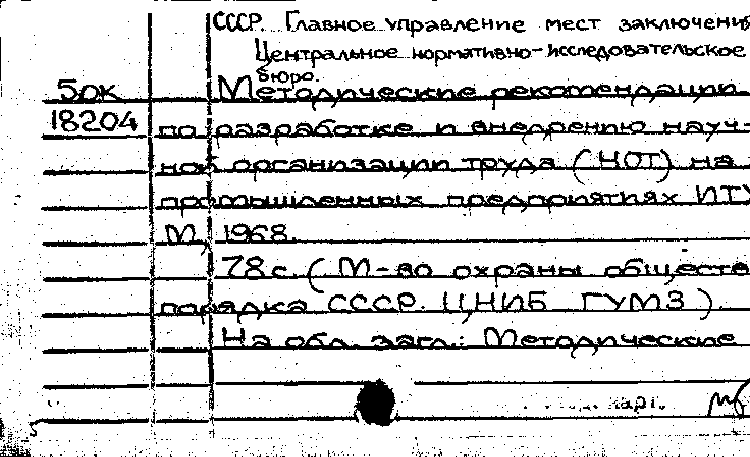 СССР. Главное управление мест заключени
Центральное нормативно-исследовательское
бюро.
5ок Методические рекомендации
18204 по разработке и внедрению науч-
ной организации труда (НОТ) на
промышленных предприятиях ИТУ
М, 1968.
78с. (М-во охраны обществе
порядка СССР. ЦНИБ ГУМЗ).
На обл. загл.: Методические